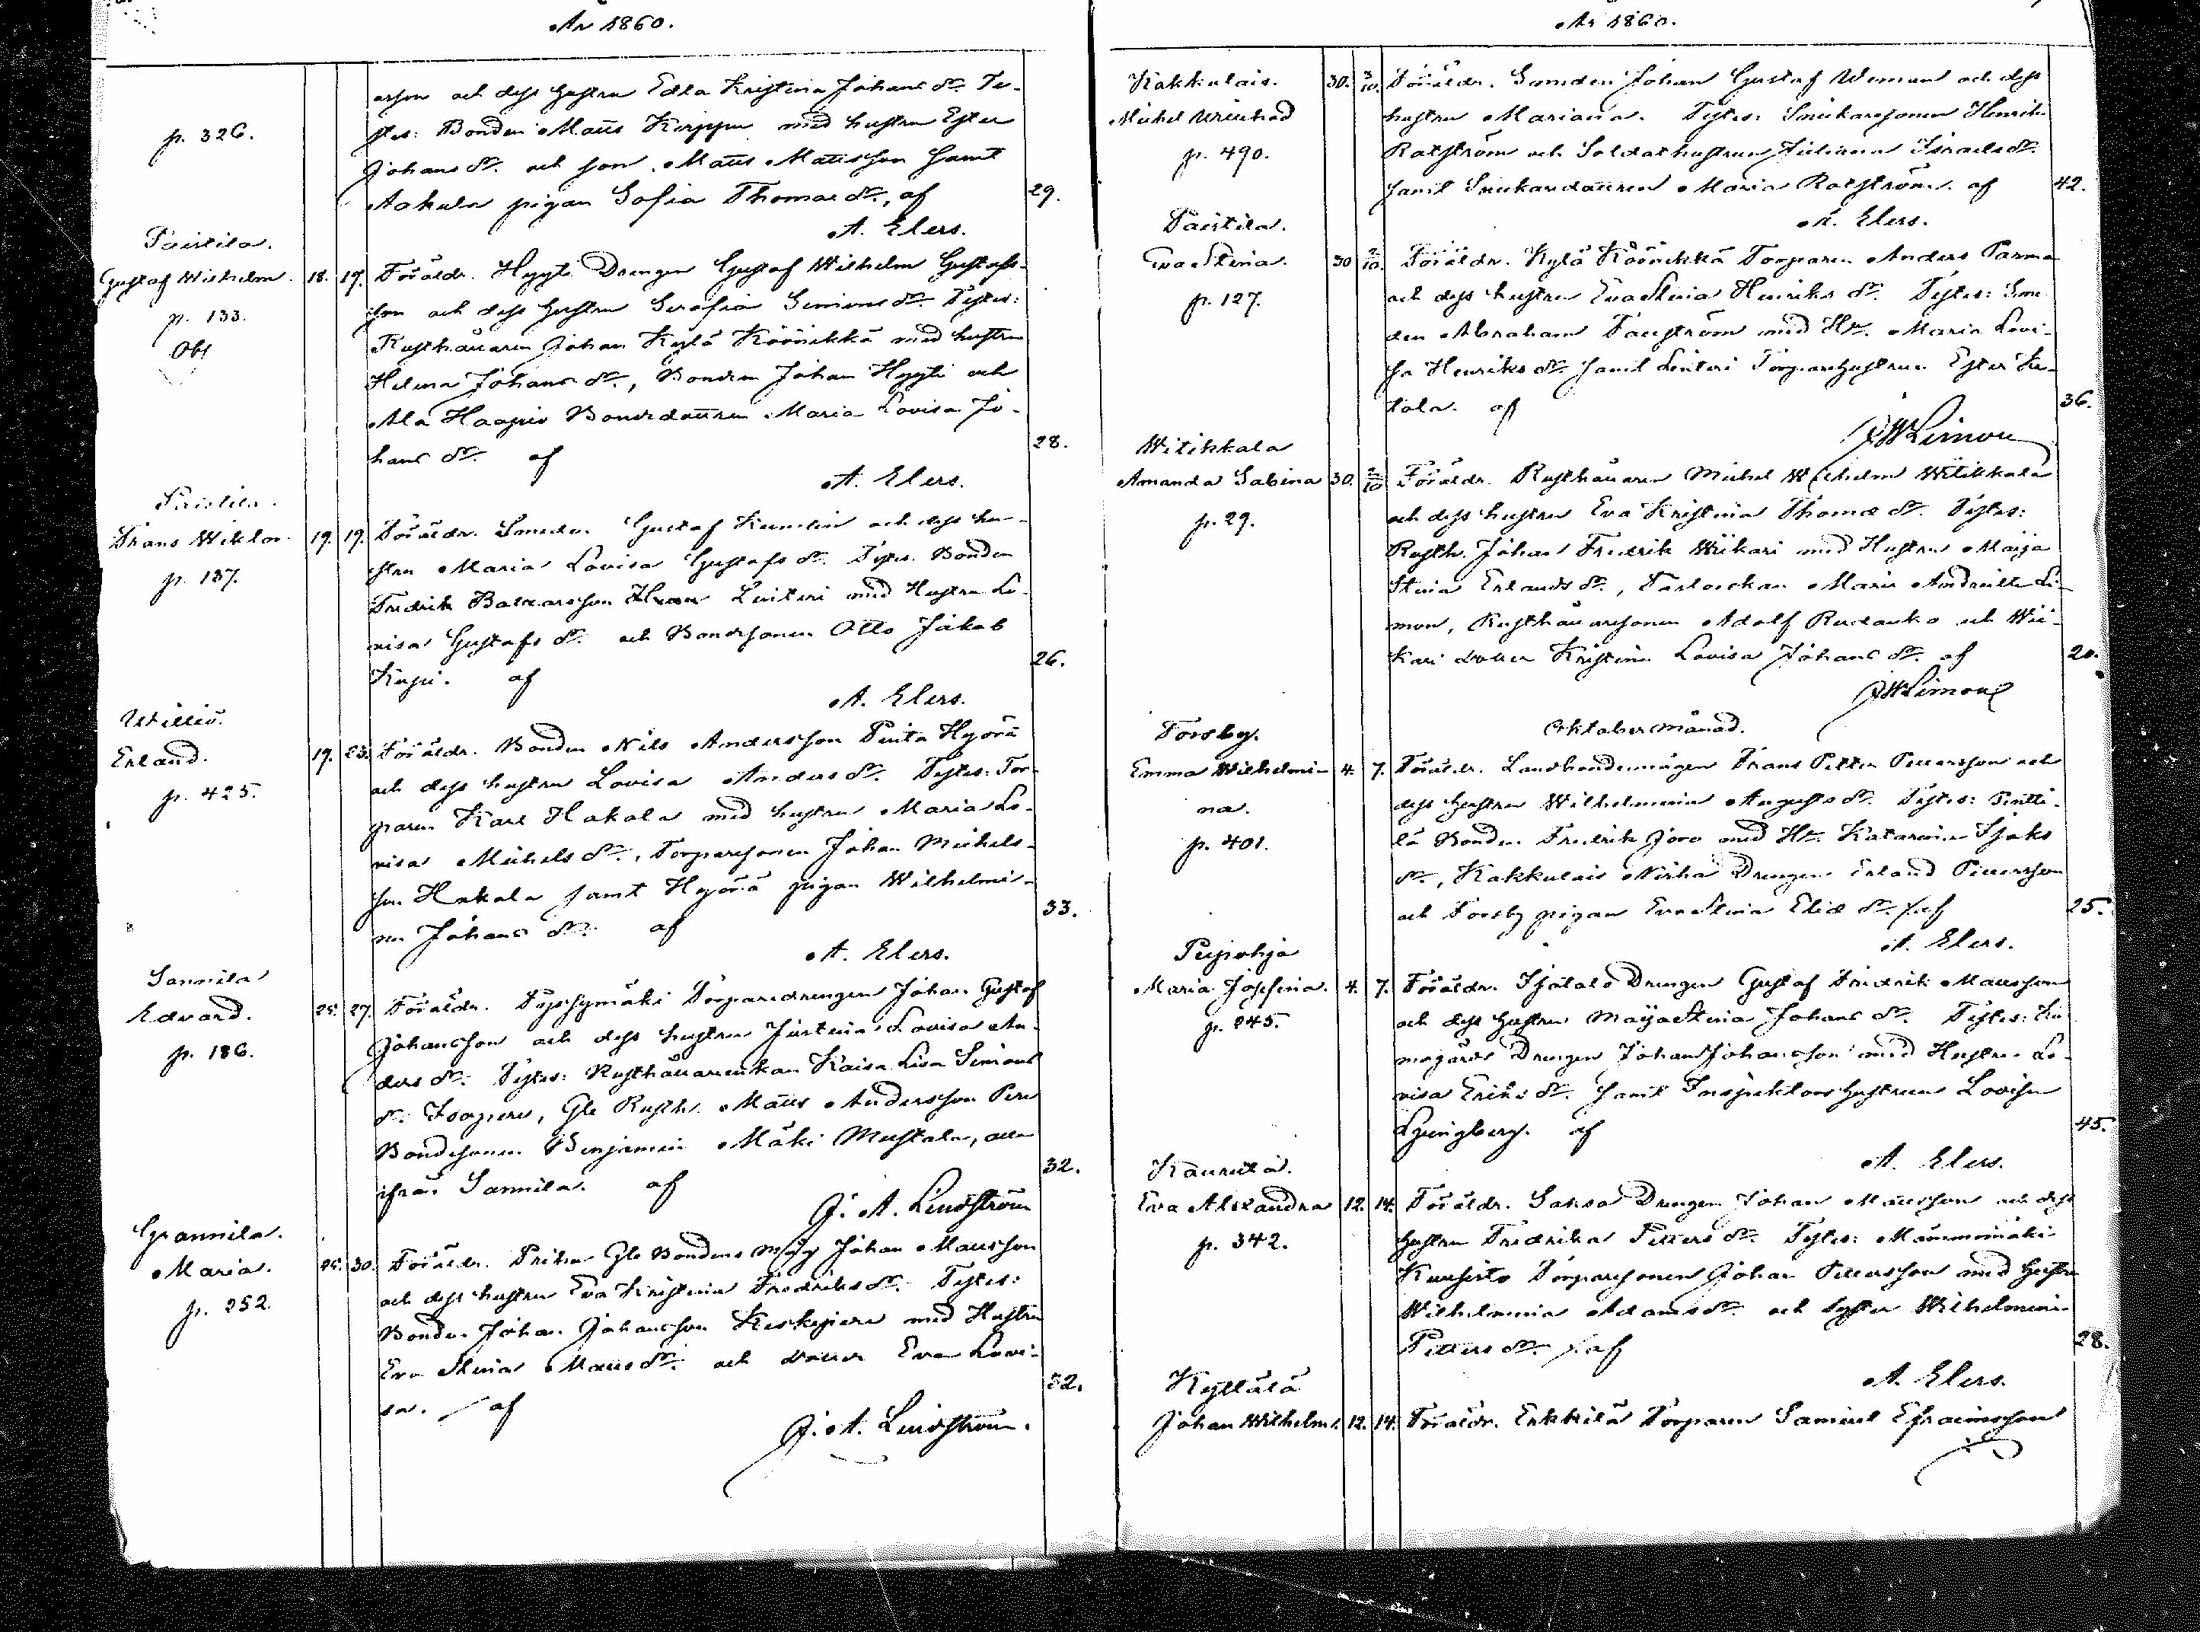 År 1860.
p. 326.
arson och dess hustru Edla Kristina Johans dr. Te-
stes: Bonden Matts Korppu med hustru Ester
Johans dr. och son Matts Mattsson samt
Aakula pigan Sofia Thomas dr., af 29.
A. Elers.
Paistila.
Gustaf Wilhelm. 18. 19. Föräldr. Hyyti Drengen Gustaf Wilhelm Gustafs-
p. 133.
Obs
son och dess hustru Serafia Simons dr. Testes:
Rusthållaren Johan Kylä Köönikkä med hustru
Helena Johans dr., Bonden Johan Hyyti och
Ala Haapio Bondedottren Maria Lovisa Jo-
hans dr. af 28.
A. Elers.
Paistila.
Frans Wiktor. 19. 19. Föräldr. Smeden Gustaf Kumlin och dess hu-
p. 137.
stru Maria Lovisa Gustafs dr. Testes: Bonden
Fredrik Baltzarsson Linteri med Hustru Lo-
visa Gustafs dr. och Bondesonen Otto Jakob
af 26.
A. Elers.
Willio.
Erland. 19. 23. Föräldr. Bonden Nils Andersson Penta Hyöriä
p. 425.
och dess hustru Lovisa Anders dr. Testes: Tor-
paren Karl Hakala med hustru Maria Lo-
visa Michels dr., Torparesonen Johan Michels-
son Hakala samt Hyöriä pigan Wilhelmi-
na Johans dr. af 33.
A. Elers.
Sannila
Edvard. 25. 27. Föräldr. Torparedrengen Johan Gustaf
p. 186.
Johansson och dess hustru Justina Lovisa An-
ders dr. Testes: Rusthållareenkan Kaisa Lisa Simons
dr. Isopere, Gle Rusth. Matts Andersson Pere
Bondesonen Benjamin Mäki Mustala, alla
ifrån Sannila. af 32.
J. A. Lindström
Grannila.
Maria. 25. 30. Föräldr. Priha Gle Bondens måg Johan Mattsson
p. 252.
och dess hustru Eva Kristina Fredriks dr. Testes:
Bonden Johan Johansson Keskipere med Hustru
Eva Stina Matts dr. och dotter Eva Lovi-
sa. af 32.
J. A. Lindström.
År 1860.
Kakkulais. 30. 3/10. Föräldr. Smeden Johan Gustaf Weman och dess
Michel Wiehrad
p. 490.
hustru Mariana. Testes: Snickaresonen Henrik
Ratström och Soldathustrun Juliana Israels dr.
samt Snickaredottren Maria Ratström. af 42.
A. Elers.
Paistila.
Eva Stina. 30 2/10. Föräldr. Kylä Köönikkä Torparen Anders Parma
p. 127.
och dess hustru Eva Stina Henriks dr. Testes: Sme-
den Abraham Fagström med Hu. Maria Lovi-
sa Henriks dr. samt Linteri Torparehustrun Ester
tala. af 36.
J W Limon
Witikkala
Amanda Sabina 30. 2/10 Föräldr. Rusthållaren Michel Wilhelm Witikkala
p. 29.
och dess hustru Eva Kristina Thomas dr. Testes:
Rusth. Johan Fredrik Wiikari med Hustru Maija
Stina Erlands dr., Pastorskan Marie Li-
mon, Rusthållaresonen Adolf Rudanko och Wii-
kari dotter Kristina Lovisa Johans dr. af 20.
J W Limon
Oktober månad.
Forsby.
Emma Wilhelmi- 4. 7. Föräldr. Landbondemågen Frans Petter Pettersson och
na.
p. 401.
dess hustru Wilhelmina Augusts dr. Testes: Pentti-
lä Bonden Fredrik Jovo med Hu. Katarina Isaks
dr., Kakkulais Nirha Drengen Erland Pettersson
och Forsby pigan Eva Stina Elias dr. af 25.
A. Elers.
Pujohja
Maria Josefina. 4. 7. Föräldr. Isotalo Drengen Gustaf Fredrik Mattsson
p. 245.
och dess hustru Maija Stina Johans dr. Testes: Ku-
mogårds Drengen Johan Johansson med Hustru Lo-
visa Eriks dr. samt Inspektors hustrun Lovisa
Ljungberg. af 45.
A. Elers.
Kaurula.
Eva Alexandra 12. 14. Föräldr. Saksa Drengen Johan Mattsson och dess
p. 342.
hustru Fredrika Petters dr. Testes: Mämmönmäki
Kuusisto Torparesonen Johan Pettersson med hustru
Wilhelmina Adams dr. och syster Wilhelmina
Petters dr. af 28.
A. Elers.
Kyttälä
Johan Wilhelm. 12. 14. Föräldr. Erkkilä Torparen Samuel Efraimsson